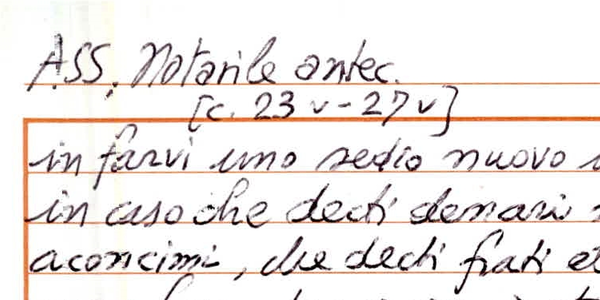 ASS, Notarile antec.
[c. 23 v - 27 v]
in farvi uno sedio nuovo
in caso che decti denari
aconcimi, che decti frati et